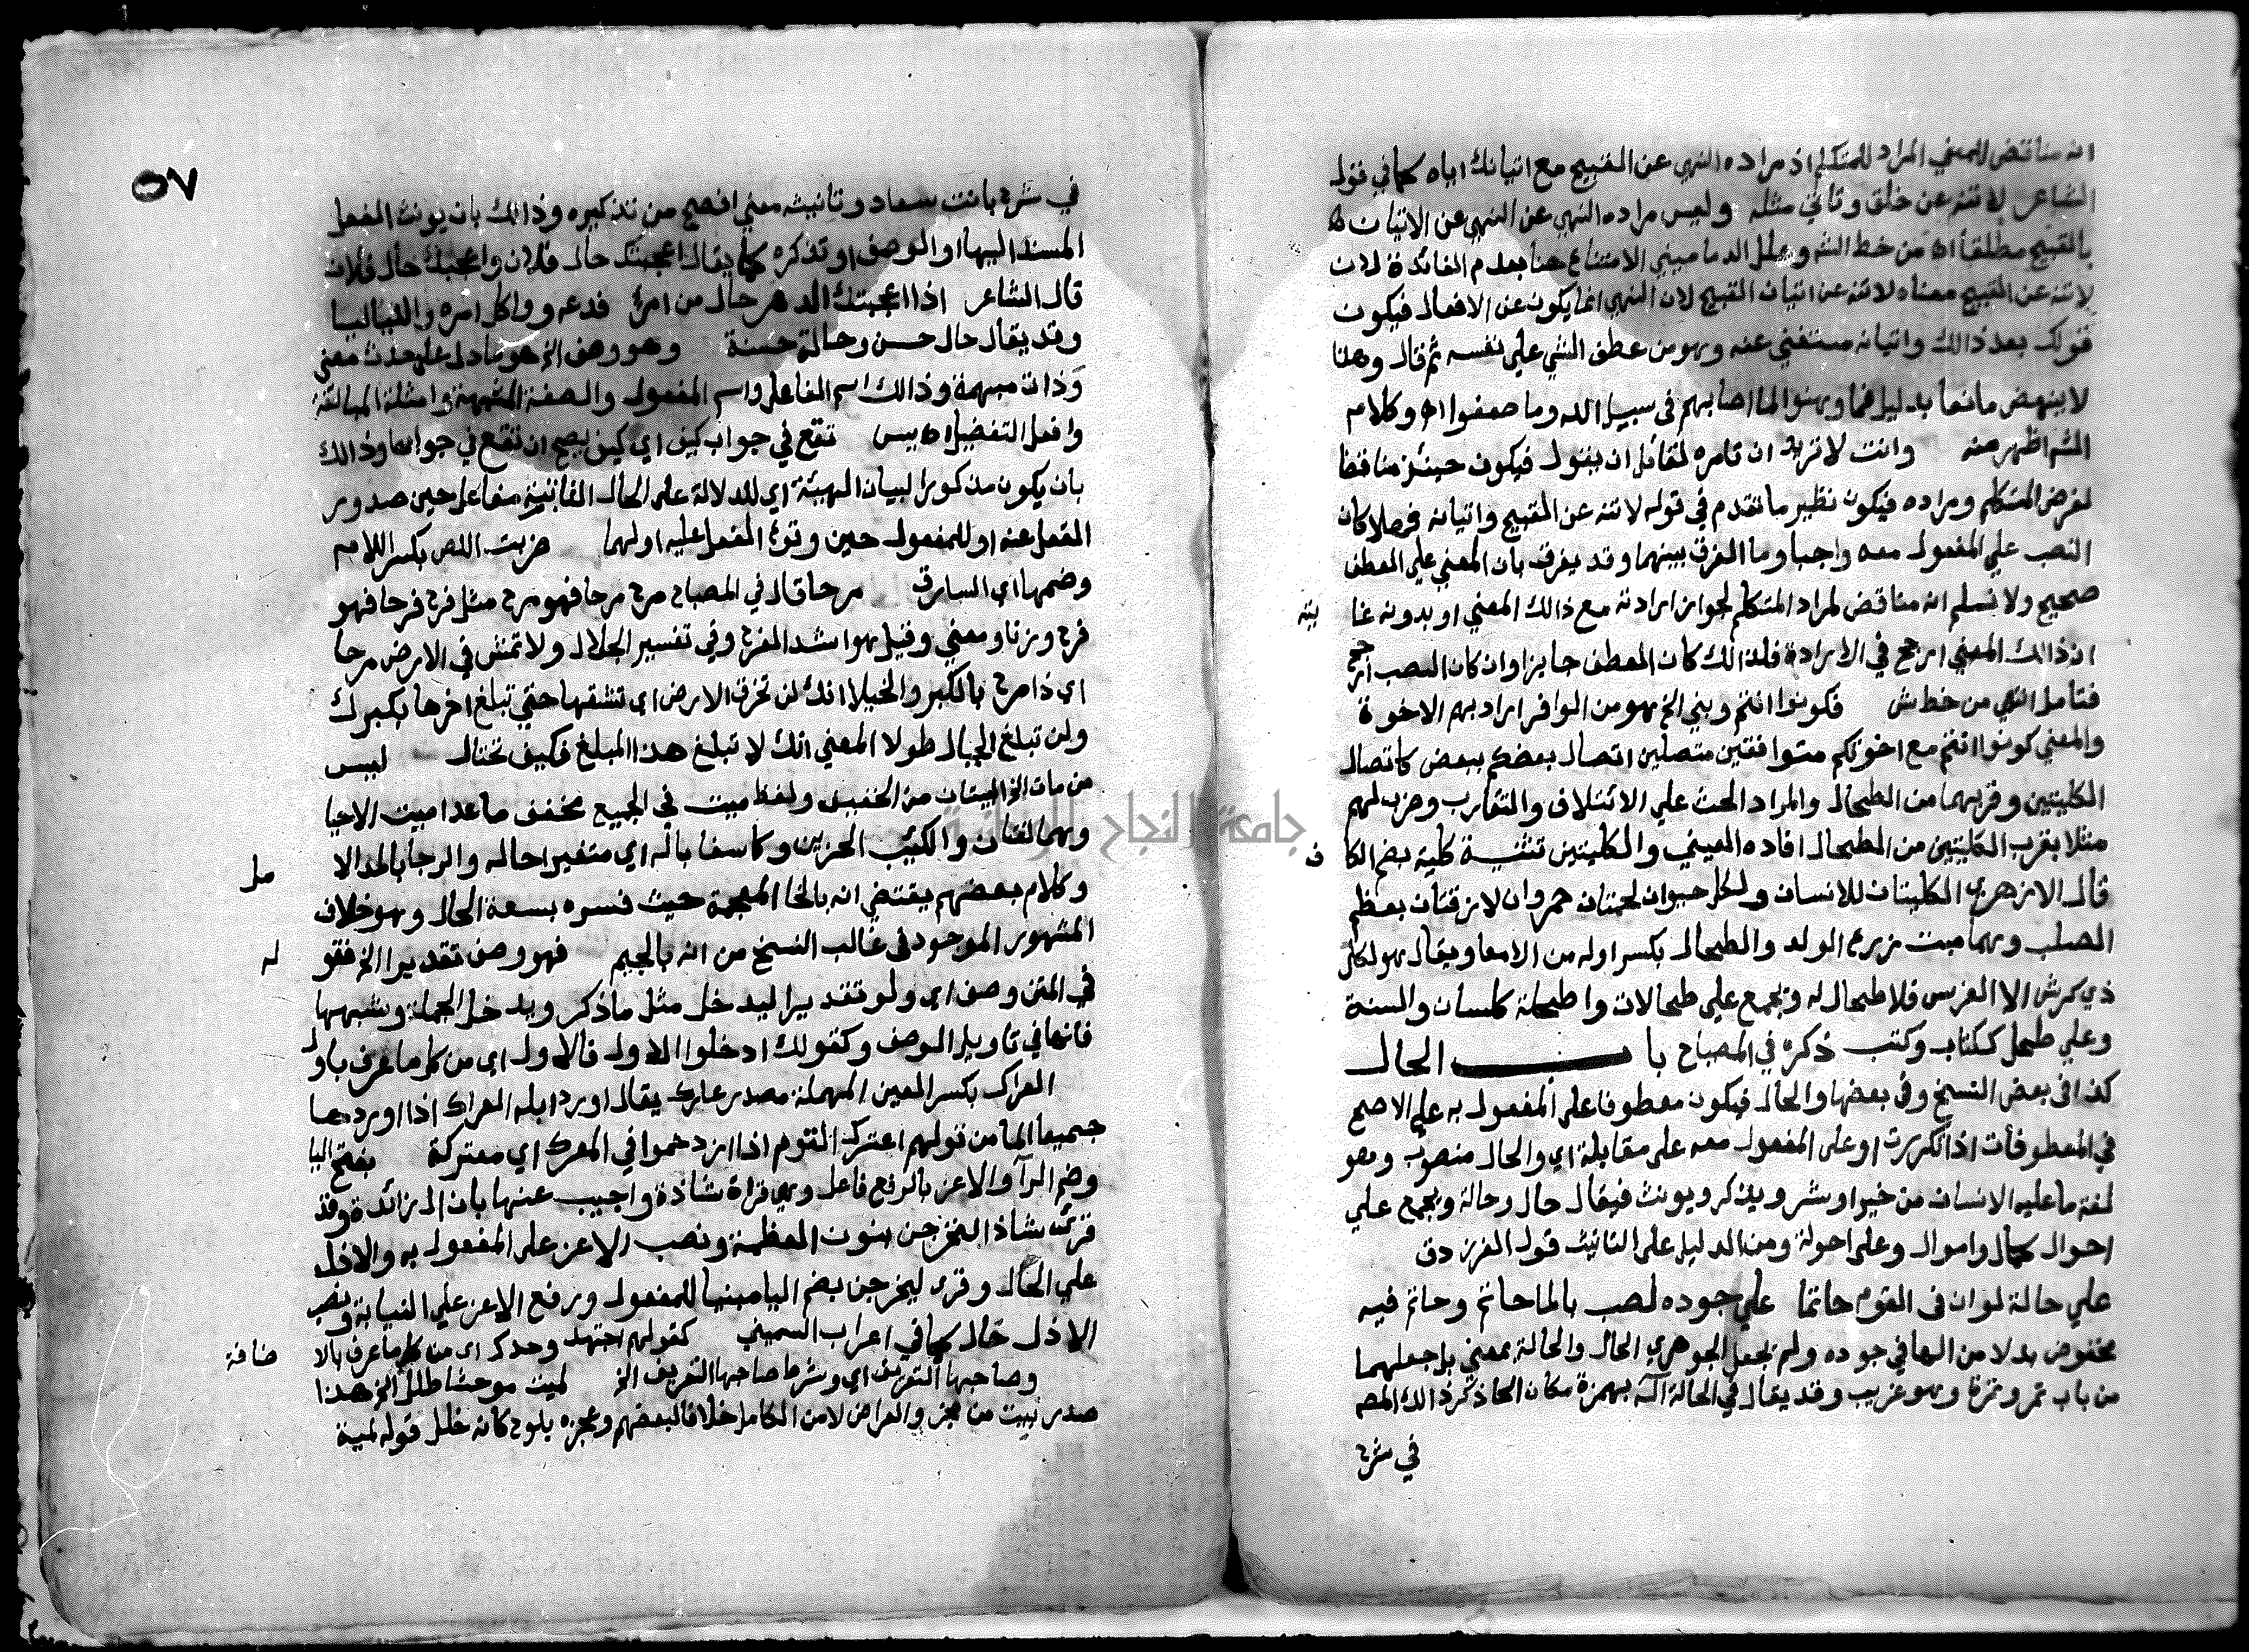 انه مناقض للمعني المراد للمتكلم اذ مراده النهي عن القبيح مع اتيانك اياه كما في قول
الشاعر لا تنه عن خلق وتاتي مثله وليس مراده النهي عن النهي عن الاتيان
بالقبيح مطلقا اه من خط الش وعلل الدماميني الامتناع هنا بعدم الفائدة لان
لا تنه عن القبيح معناه لا تنه عن اتيان القبيح لان النهي انما يكون عن الافعال فيكون
قولك بعد ذالك واتيانه مستغني عنه وهو من عطف الشي علي نفسه ثم قال وهذا
لا ينهض مانعا بدليل فما وهنوا لما اصابهم في سبيل الله وما ضعفوا اه وكلام
الش اظهر منه وانت لا تريد ان تامره لقائل ان يقول فيكون حينئذ مناقضا
لغرض المتكلم ومراده فيكون نظير ما تقدم في قوله لا تنه عن القبيح واتيانه فهلا كان
النصب علي المفعول معه واجبا وما الفرق بينهما وقد يفرق بان المعني علي العطف
صحيح ولا نسلم انه مناقض لمراد المتكلم لجواز ارادته مع ذالك المعني او بدونه غا يته
ان ذالك المعني ارجح في الارادة فلذالك كان العطف جايزا وان كان النصب ارجح
فتامل انتهي من خط ش فكونوا انتم وبني الخ هو من الوافر اراد بهم الاخوة
والمعني كونوا انتم مع اخوتكم متوافقين متصلين اتصال بعضكم ببعض كاتصال
الكليتين وقربهما من الطحال والمراد الحث علي الائتلاف والتقارب وضرب لهم
مثلا بقرب الكليتين من الطحال افاده العيني والكليتين تثنية كلية بضم الكا ف
قال الازهري الكليتان للانسان ولكل حيوان لحمتان حمروان لازقتان بعظم
الصلب وهما منبت زرع الولد والطحال بكسر اوله من الامعا ويقال هو لكل
ذي كرش الا الفرس فلا طحال له ويجمع علي طحالات واطحلة كلسان والسنة
وعلي طحل ككتاب وكتب ذكره في المصباح باب الحال
كذا في بعض النسخ وفي بعضها والحال فيكون معطوفا علي المفعول به علي الاصح
في المعطوفات اذا تكررت او علي المفعول معه علي مقابله اي والحال منصوب وهو
لغة ما عليه الانسان من خير او شر ويذكر ويونث فيقال حال وحالة ويجمع علي
احوال كمال واموال وعلي احولة ومن الدليل علي التانيث قول الفرزدق
علي حالة لو ان في القوم حاتما علي جوده لضن بالما حاتم وحاتم فيه
مخفوض بدلا من الها في جوده ولم يجعل الجوهري الحال والحالة بمعني بل جعلهما
من باب تمر وتمرة وهو غريب وقد يقال في الحالة آلة بهمزة مكان الحا ذكر ذالك المص
في شرح
٥٧
في شرح بانت سعاد وتانيثه معني افصح من تذكيره وذالك بان يونث الفعل
المسند اليها او الوصف او تذكره كما يقال اعجبتك حال فلان واعجبك حال فلان
قال الشاعر اذا اعجبتك الدهر حال من امرئ فدعه وواكل امره واللياليا
وقد يقال حال حسن وحالة حسنة وهو وصف الخ هو ما دل علي حدث معني
وذات مبهمة وذالك اسم الفاعل واسم المفعول والصفة المشبهة وامثلة المبالغة
وافعل التفضيل اه يس تقع في جواب كيف اي كيف يصح ان تقع في جوابها وذالك
بان يكون مذكورا لبيان الهيئة اي للدلالة علي الحال الفاعل حين صدور
الفعل عنه او للمفعول حين وقوع الفعل عليه او لهما ضربت اللص بكسر اللام
وضمها اي السارق مرحا قال في المصباح مرح مرحا فهو مرح مثل فرح فرحا فهو
فرح وزنا ومعني وقيل هو اشد الفرح وفي تفسير الجلال ولا تمش في الارض مرحا
اي ذا مرح بالكبر والخيلا انك لن تخرق الارض اي تشقها حتي تبلغ اخرها بكبرك
ولن تبلغ الجبال طولا المعني انك لا تبلغ هذا المبلغ فكيف تختال ليس
من مات الخ البيتان من الخفيف ولفظ ميت في الجميع مخفف ما عدا ميت الاحيا
وهما لغتان والكئيب الحزين وكاسفا باله اي متغيرا حاله والرجا بالمد الا مل
وكلام بعضهم يقتضي انه بالخا المعجمة حيث فسره بسعة الحال وهو خلاف
المشهور الموجود في غالب النسخ من انه بالجيم فهو وصف تقديرا الخ فقو له
في المتن وصف اي ولو تقديرا ليدخل مثل ما ذكر ويدخل الجملة وشبهها
فانها في تاويل الوصف وكقولك ادخلوا الاول فالاول اي من كل ما عرف باول
العراك بكسر العين المهملة مصدر عارك يقال اورد ابله العراك اذا اوردها
جميعا الما من قولهم اعترك القوم اذا ازدحموا في المعرك اي معتركة بفتح اليا
وضم الرآ والاعز بالرفع فاعل وهي قراة شاذة واجيب عنها بان ال زائدة وقد
قرئ شاذا لنخرجن بنون العظمة ونصب الاعز علي المفعول به والاذل
علي الحال وقرئ ليخرجن بضم اليا مبنيا للمفعول ورفع الاعز علي النيابة ونصب
الاذل حال كما في اعراب السمين كقولهم اجتهد وحدك اي من كل ما عرف بالا ضافة
وصاحبها التعريف اي وشرط صاحبها التعريف الخ لمية موحشا طلل الخ هذا
صدر بيت من مجزو الوافر لا من الكامل خلافا لبعضهم وعجزه يلوح كانه خلل قوله لمية